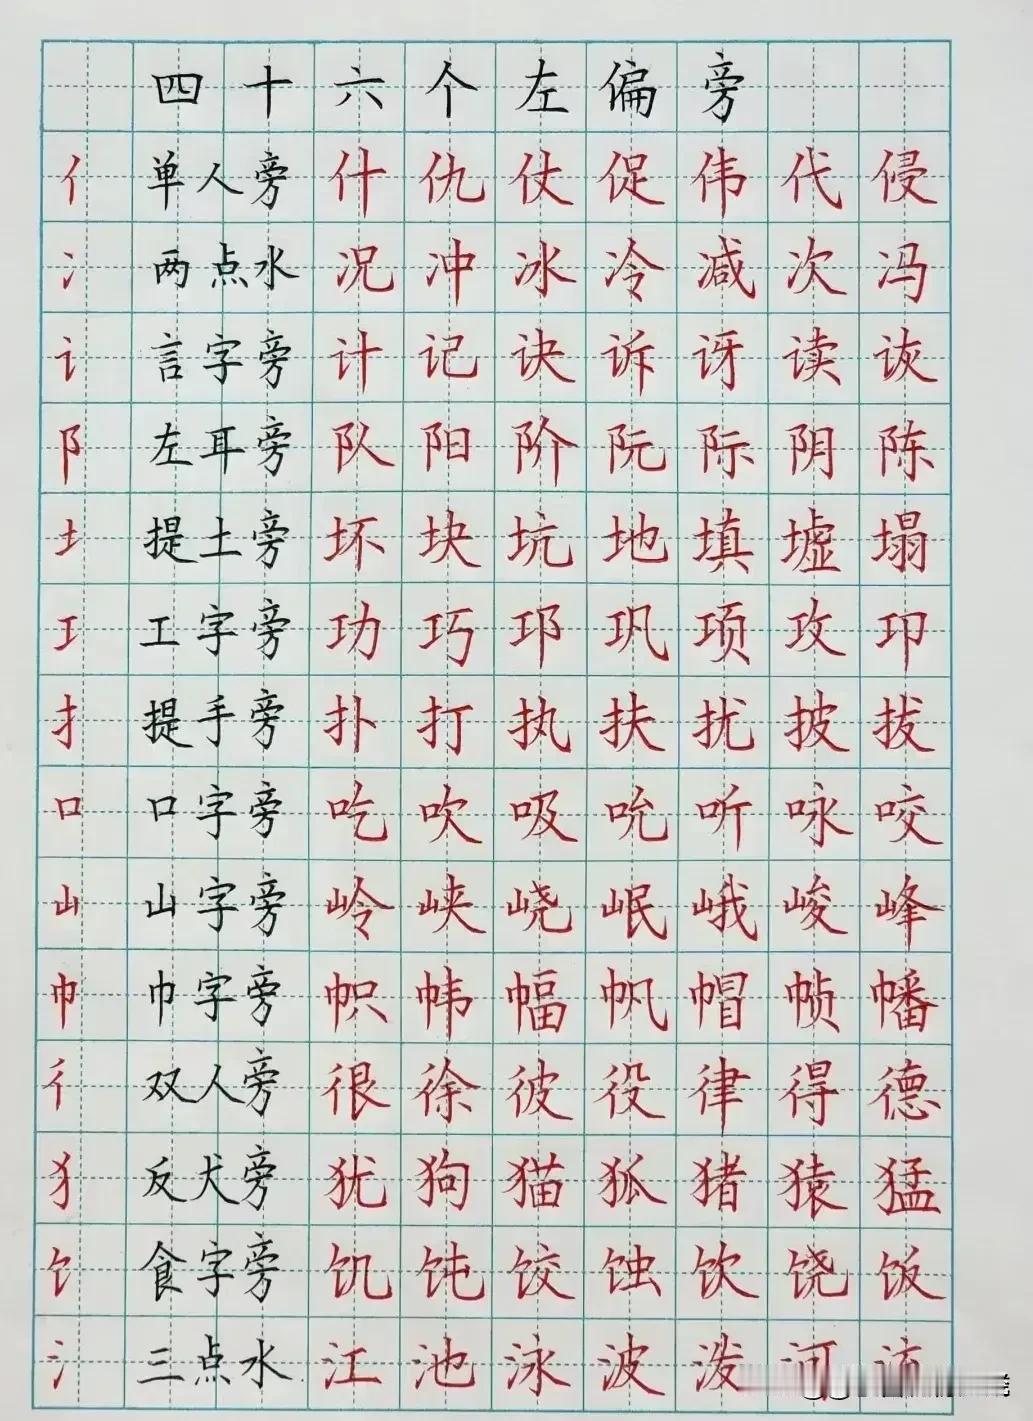 四十六个左偏旁
亻 单人旁 什 仇 仗 促 伟 代 侵
冫 两点水 况 冲 冰 冷 减 次 冯
讠 言字旁 计 记 诀 诉 讶 读 诙
阝 左耳旁 队 阳 阶 阮 际 阴 陈
土 提土旁 坏 块 坑 地 填 墟 塌
工 工字旁 功 巧 邛 巩 项 攻 卭
扌 提手旁 扑 打 执 扶 扰 披 拔
口 口字旁 吃 吹 吸 吮 听 咏 咬
山 山字旁 岭 峡 峣 岷 峨 峻 峰
巾 巾字旁 帜 帏 幅 帆 帽 帧 幡
彳 双人旁 很 徐 彼 役 律 得 德
犭 反犬旁 犹 狗 猫 狐 猪 猿 猛
饣 食字旁 饥 饨 饺 蚀 饮 饶 饭
氵 三点水 江 池 泳 波 泼 河